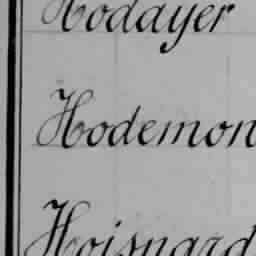 Hodayer
Hodemon
Hoisnard